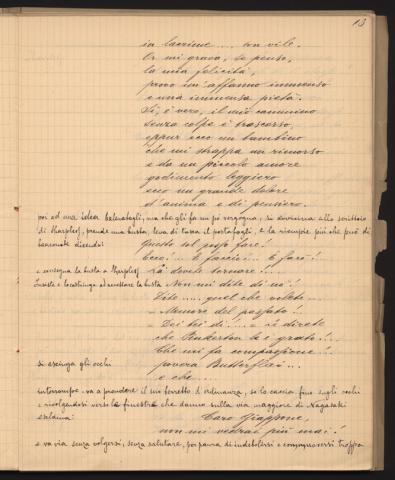 13
in lacrime.... son vile.
Or mi grava, se penso,
la mia felicità,
provo un' affanno immenso
e una immensa pietà.
Sì, è vero, il mio cammino
senza colpe è trascorso,
eppur ecco un bambino
che mi strappa un rimorso
e da un piccolo amore
godimento leggiero
ecco un grande dolore
d'anima e di pensiero.
poi ad una idea balenatagli, ma che gli fa un pò vergogna, si avvicina allo scrittoio
di Sharpless, prende una busta, leva di tasca il portafogli, e la riempie più che può di
banconote dicendo:
Questo sol posso fare!
ecco!.. E faccio!.. E farò!
e consegna la busta a Sharpless
Là dovete tornare!...
Insiste e lo costringe ad accettare la busta
Non mi dite di no!
Dite.... quel che volete
Memore del passato
Dei bei dì!... sì direte
che Pinkerton le è grato!...
Che mi fa compassione!
si asciuga gli occhi
povera Butterfly...
e che....
interrompe. va a prendere il suo berretto d'ordinanza, se lo caccia fino sugli occhi
e rivolgendosi verso la finestra che danno sulla via maggiore di Nagasaki
esclama:
Caro Giappone,
non mi vedrai più mai!
e va via senza volgersi, senza salutare, per paura di indebolirsi e commuoversi troppo